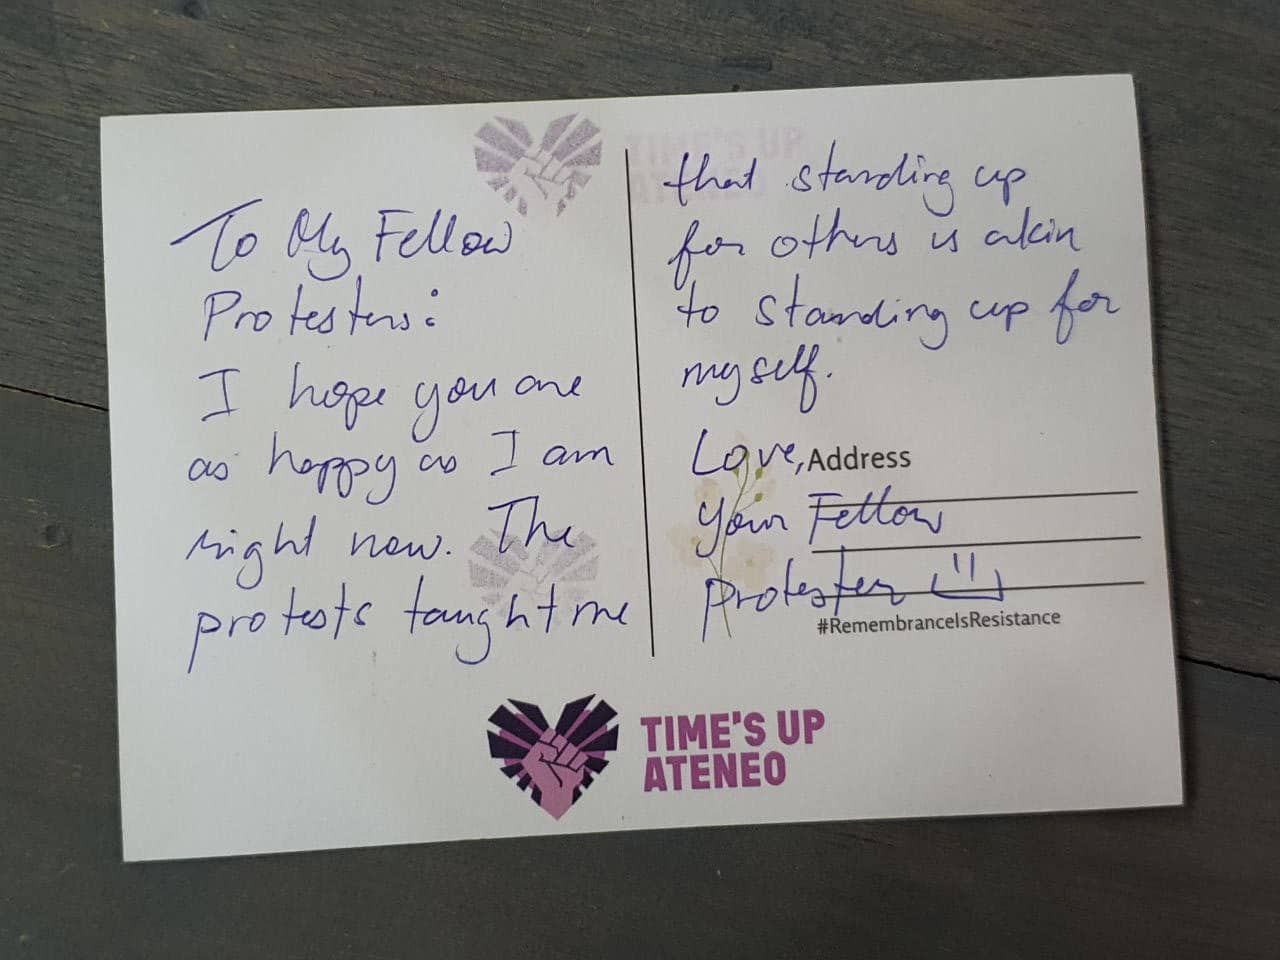 To My Fellow
Protesters:
I hope you are
as happy as I am
right now. The
protests taught me
TIME'S UP
ATENEO
that standing up
for others is akin
to standing up for
myself.
Love, Address
Your Fellow
Protester
#RemembranceIsResistance
TIME'S UP
ATENEO